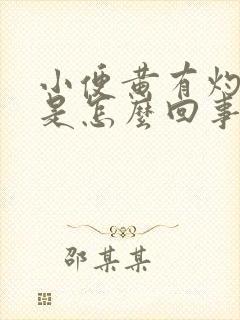 小便黄有灼
是怎麼回事
邵某某